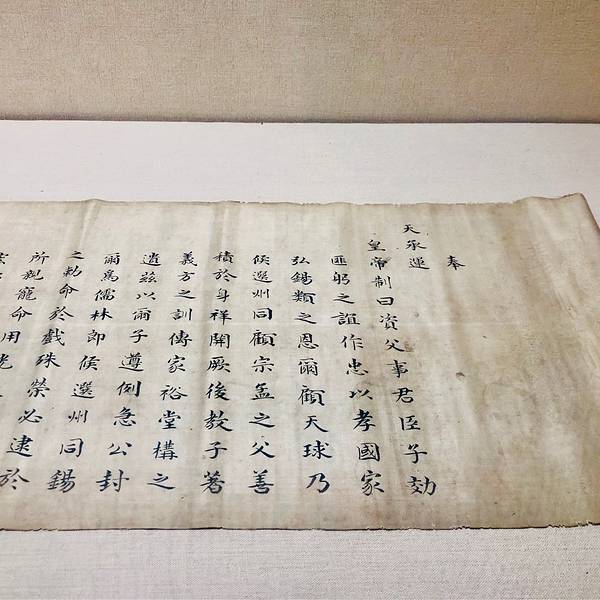 奉
天承運
皇帝制曰資父事君臣子効
匪躬之誼作忠以孝國家
弘錫類之恩爾顧天球乃
候選州同顧宗孟之父善
積於身祥開厥後教子著
義方之訓傳家裕堂構之
遺茲以爾子遵例急公封
爾爲儒林郎候選州同錫
之勅命於戲珠榮必逮於
所親寵命用光